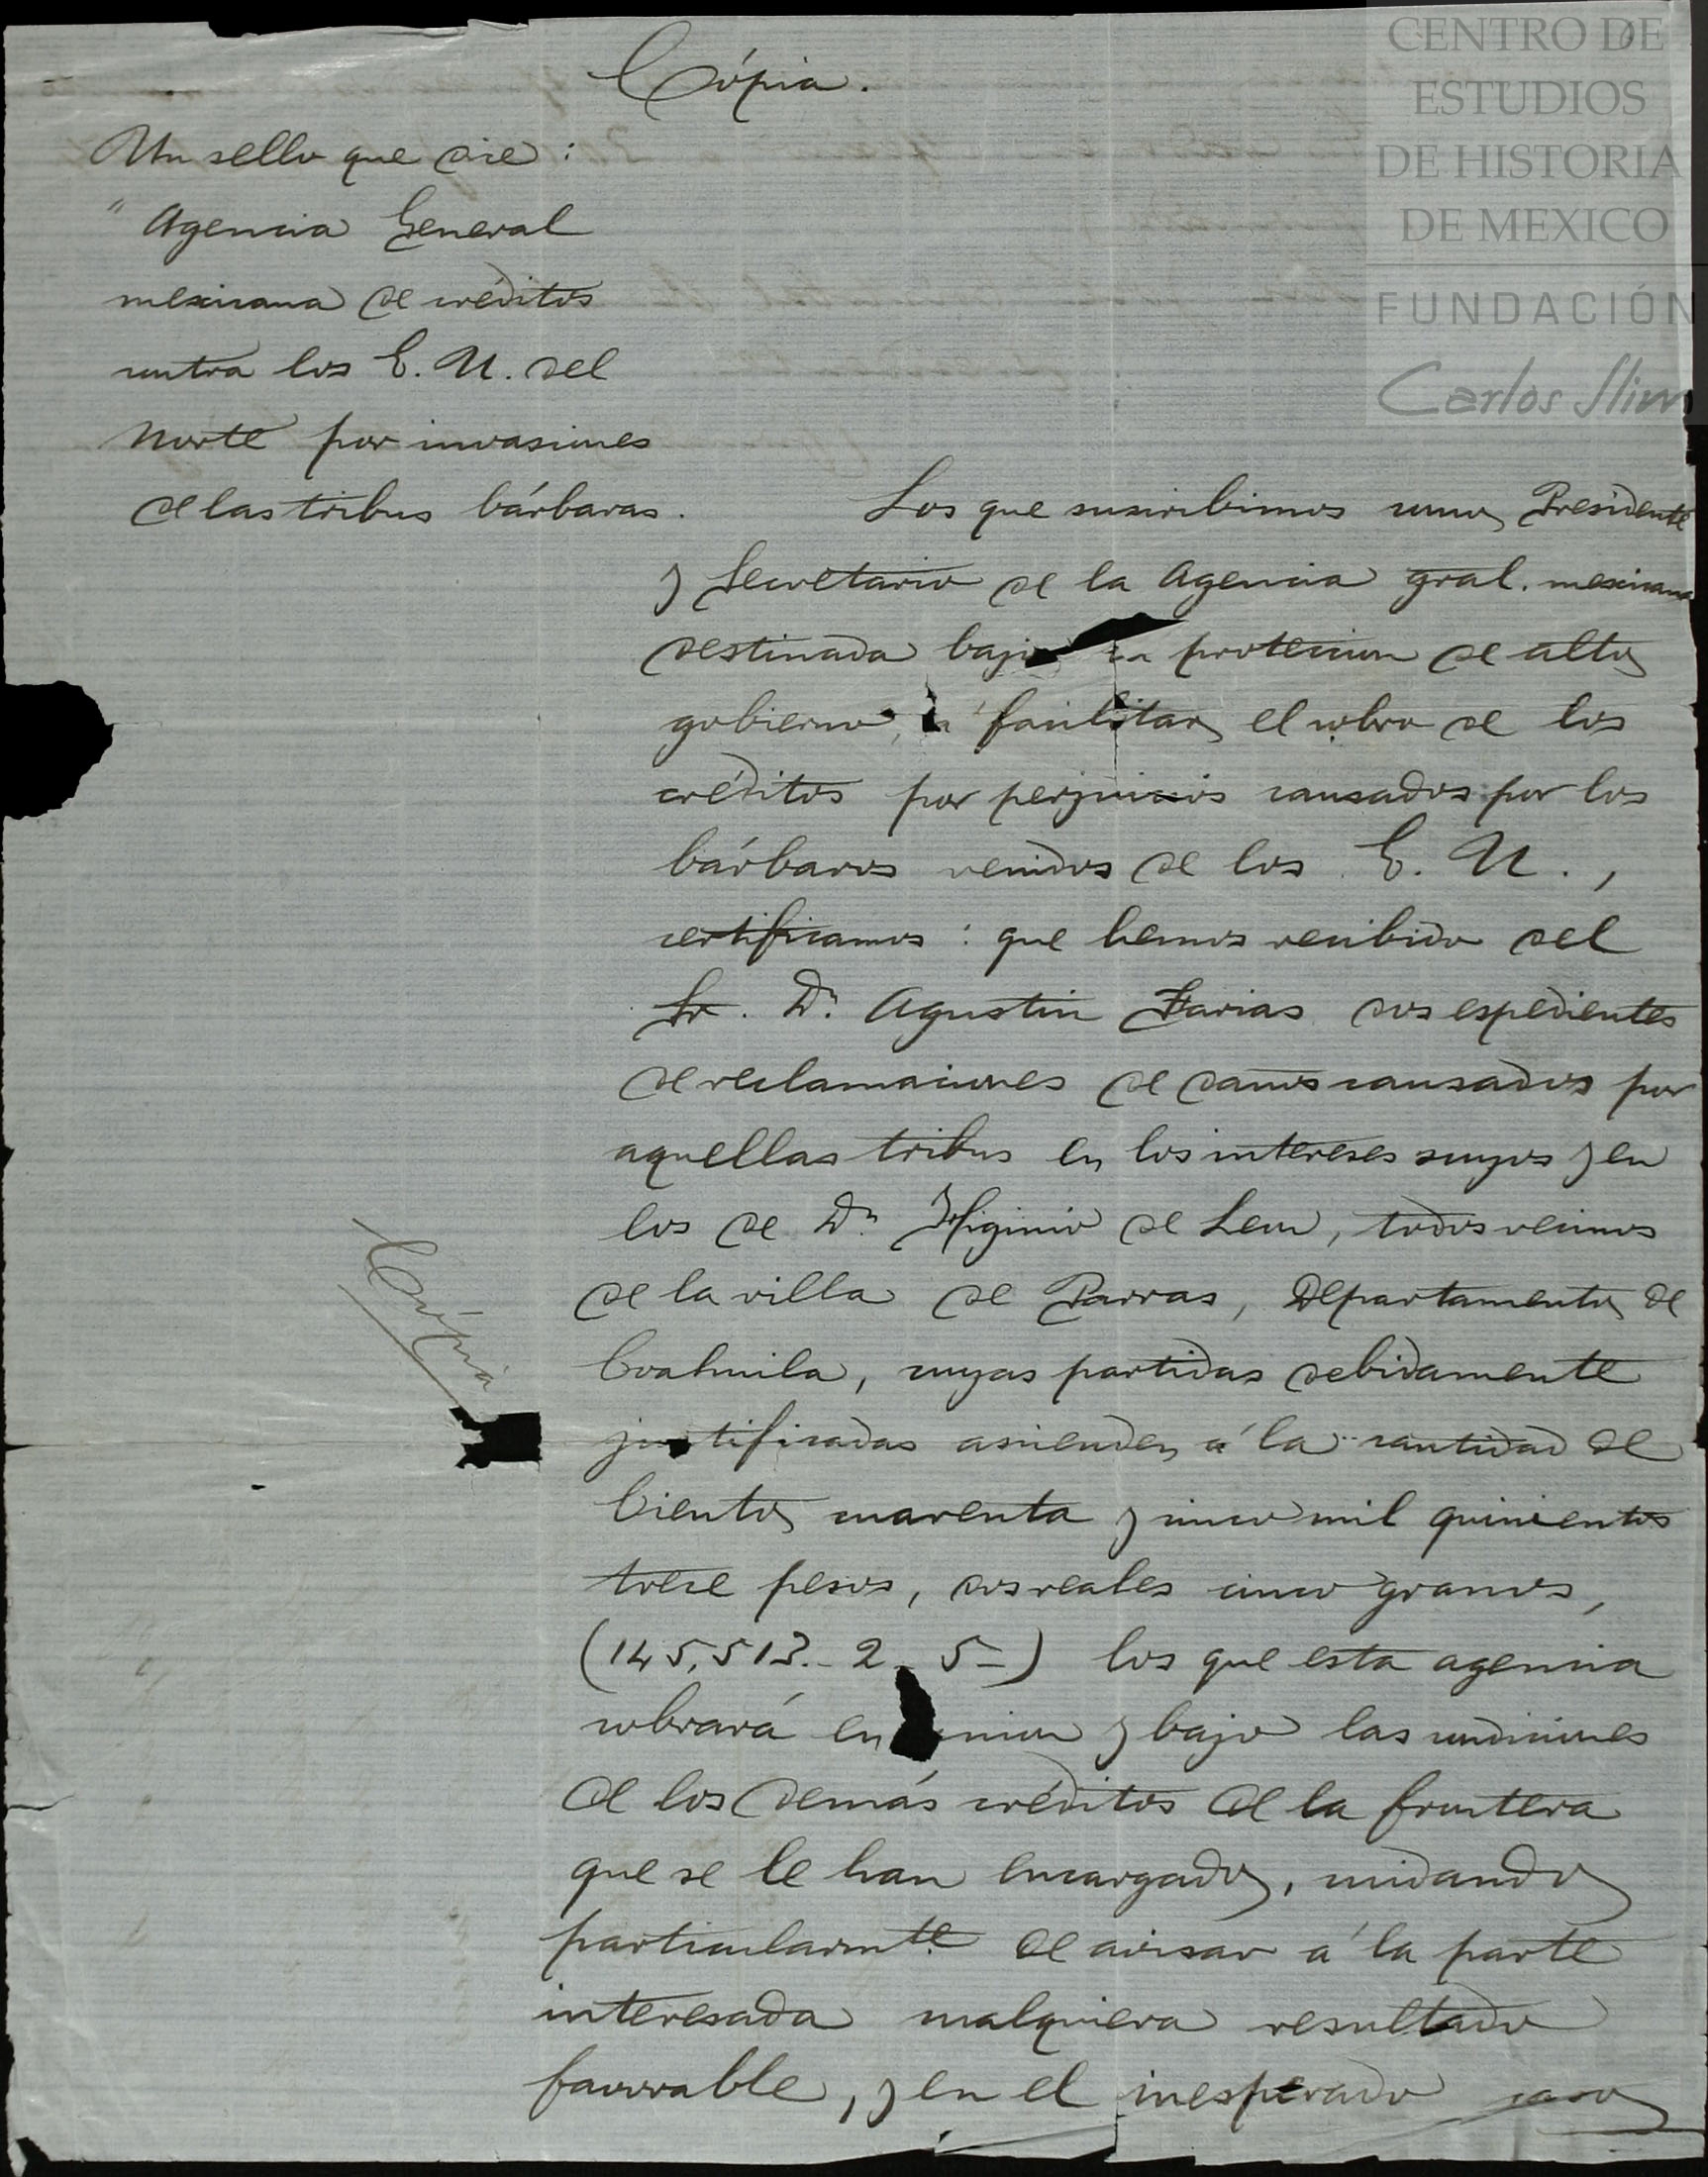 CENTRO DE
ESTUDIOS
DE HISTORIA
DE MEXICO
FUNDACIÓN
Carlos Slim
Cópia.
Un sello que dice:
"Agencia General
mexicana de créditos
contra los E. U. del
Norte por invasiones
de las tribus bárbaras.
Los que suscribimos como Presidente
y Secretario de la Agencia gral. mexicana
destinada bajo la proteccion de alto
gobierno, á facilitar el cobro de los
créditos por perjuicios causados por los
bárbaros venidos de los E. U.,
certificamos: que hemos recibido del
Sr. Dn. Agustin Farias dos espedientes
de reclamaciones de daños causados por
aquellas tribus en los intereses suyos y en
los de Dn. Higinio de Leon, todos vecinos
de la villa de Parras, Departamento de
Coahuila, cuyas partidas debidamente
justificadas ascienden á la cantidad de
Ciento cuarenta y cinco mil quinientos
trece pesos, dos reales cinco granos,
(145,513.- 2. 5-) los que esta agencia
cobrará en union y bajo las condiciones
de los demás créditos de la frontera
que se le han encargado, cuidando
particularmte. de avisar á la parte
interesada cualquiera resultado
favorable, y en el inesperado caso
Cópia